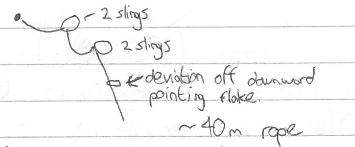 2 slings
2 slings
deviation off downward
pointing flake.
~40m rope